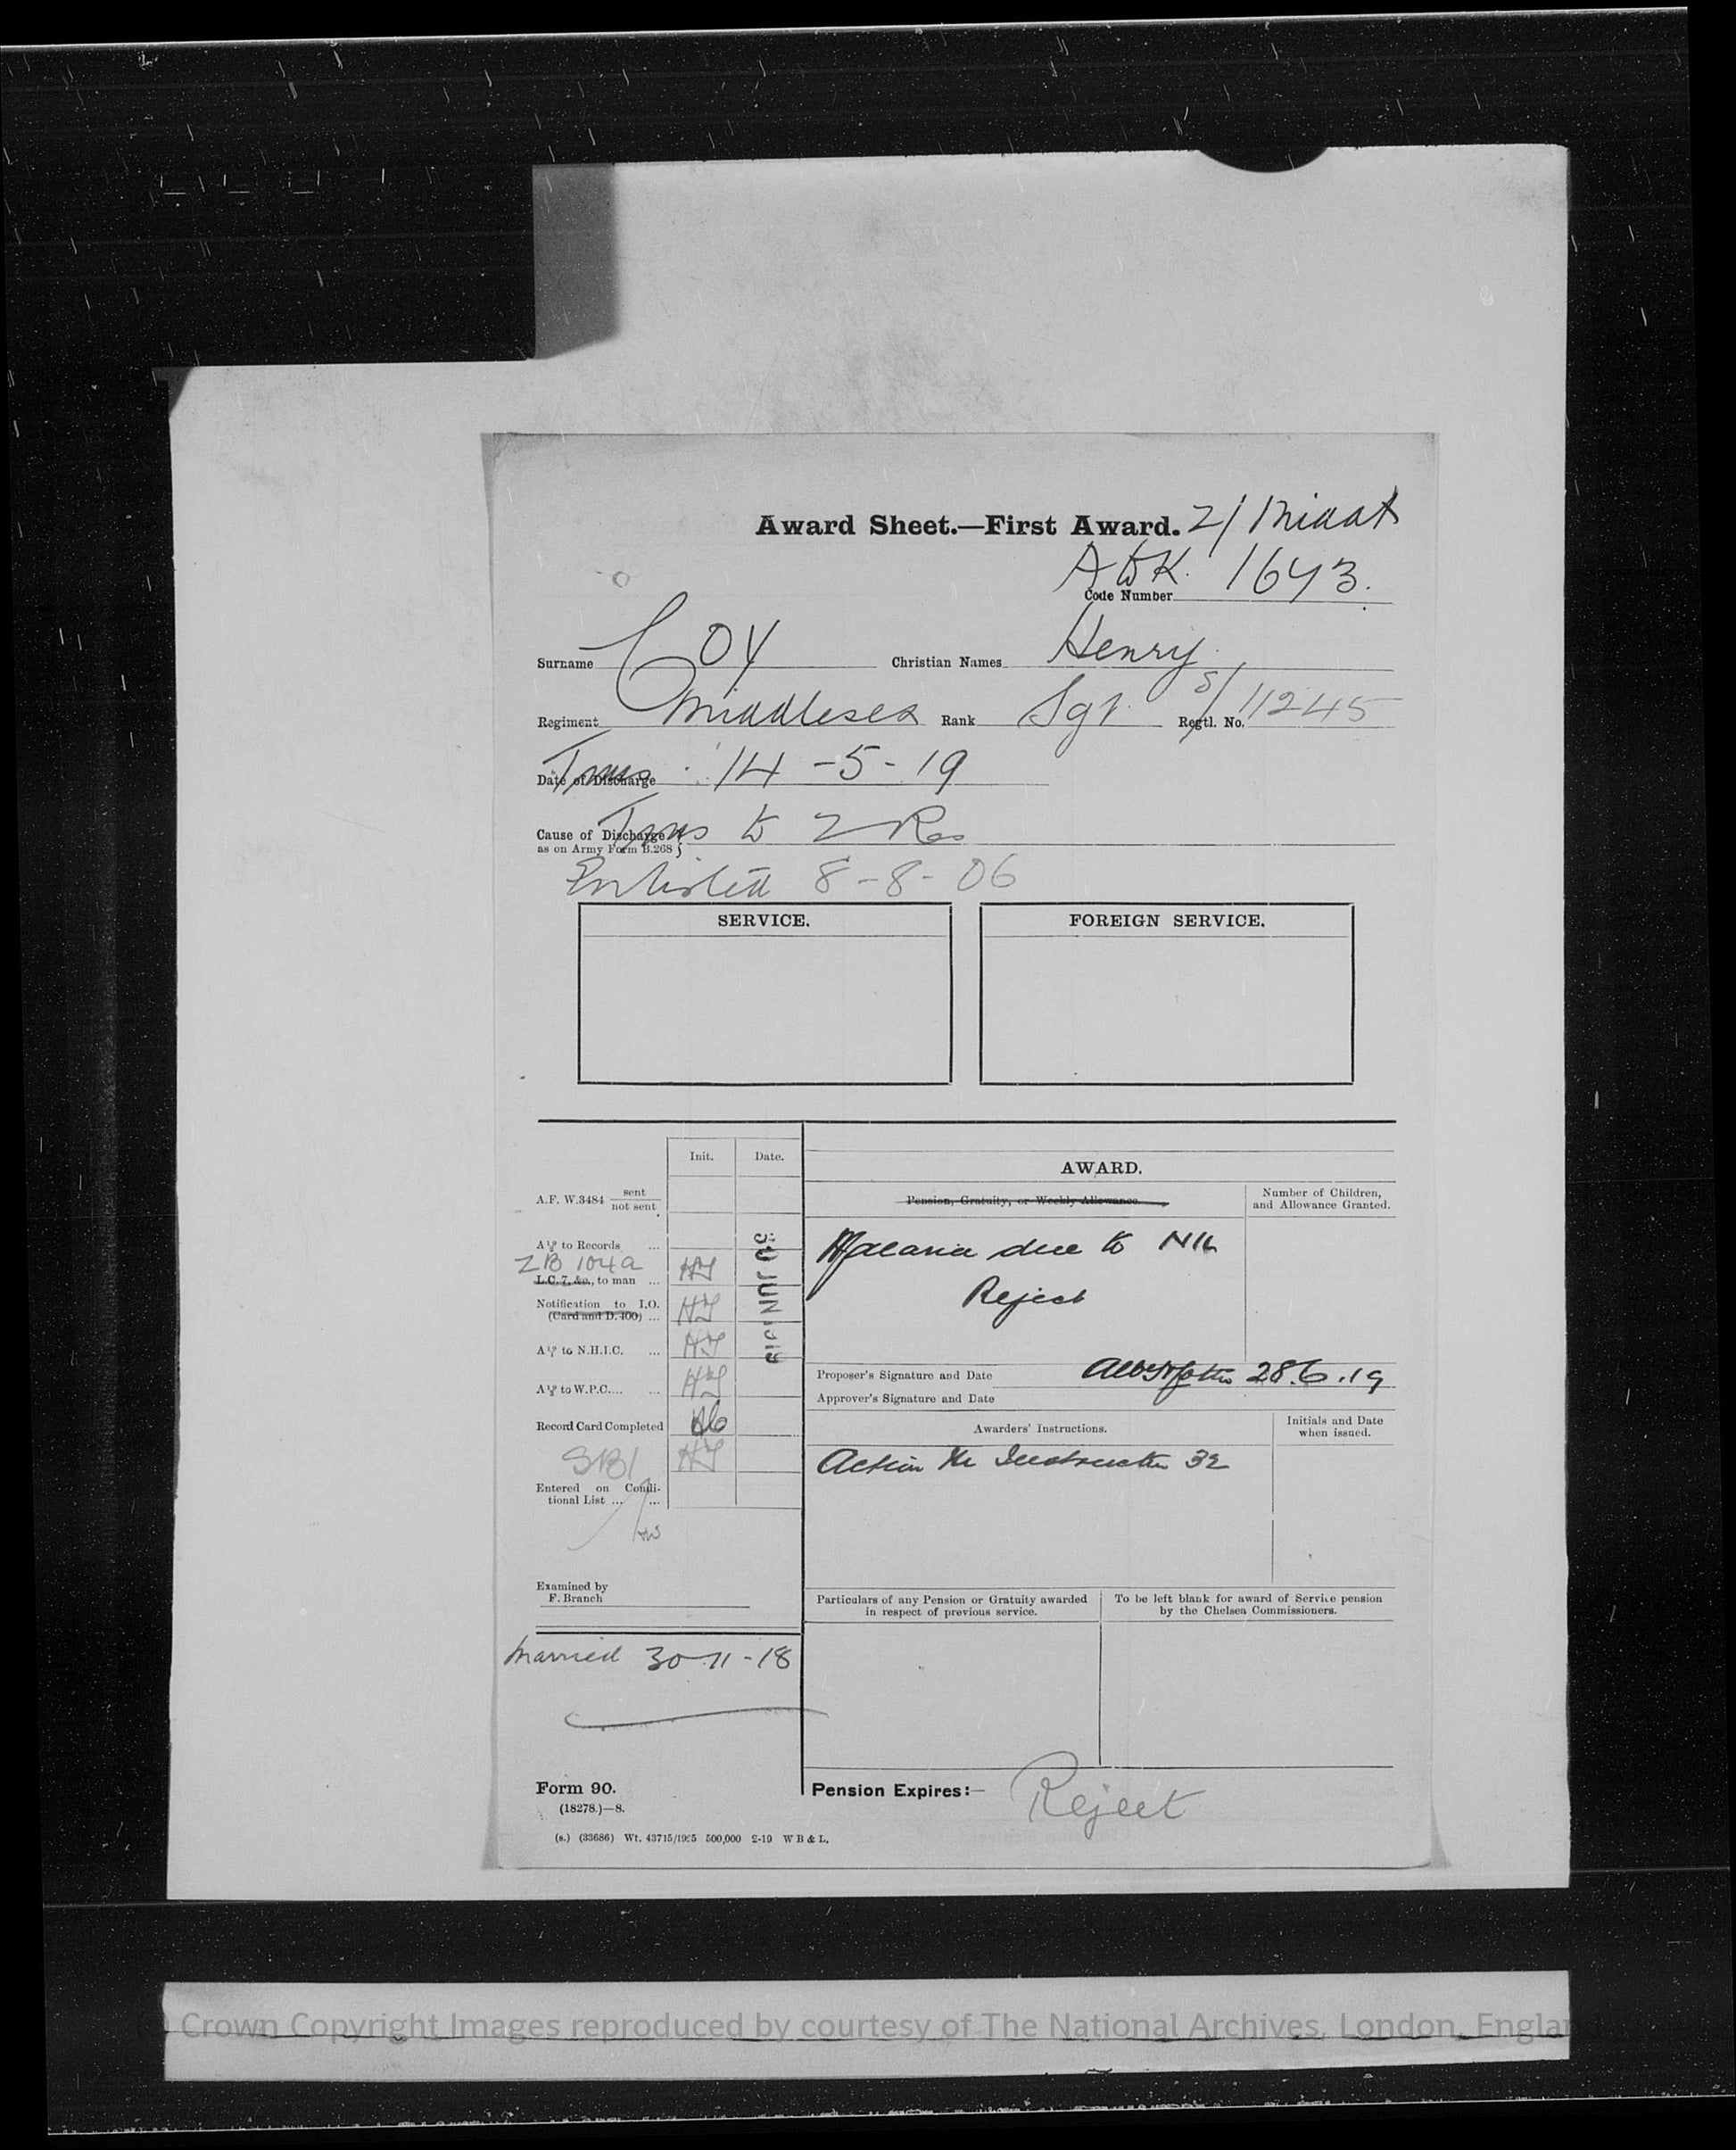 Award Sheet.—First Award. 2/ Middx
Code Number 1643.
Surname Cox Christian Names Henry
Regiment Middlesex Rank Sgt Regtl. No. S/11245
Date of Discharge Trans 14-5-19
Cause of Discharge as on Army Form B.268 } Trans to Z Res
Enlisted 8-8-06
SERVICE. FOREIGN SERVICE.
Init. Date.
AWARD.
A.F. W.3484 sent
not sent
Pension, Gratuity, or Weekly Allowance.
Number of Children,
and Allowance Granted.
to Records ...
ZB 104a
L.C. 7, &c., to man ... HT
Notification to I.O.
(Card and D. 400) ... HT
to N.H.I.C. ... HT
to W.P.C.... ... HT
Record Card Completed
SB1 HT
Entered on Condi-
tional List ... ...
30 JUN 1919
Malaria due to
Reject
Proposer's Signature and Date 28.6.19
Approver's Signature and Date
Awarders' Instructions.
Initials and Date
when issued.
Action 32
Examined by
F. Branch
Particulars of any Pension or Gratuity awarded
in respect of previous service.
To be left blank for award of Service pension
by the Chelsea Commissioners.
Married 30-11-18
Form 90.
(18278.)—8.
Pension Expires:— Reject
(s.) (33686) Wt. 43715/1925 500,000 2-19 W B & L.
Crown Copyright Images reproduced by courtesy of The National Archives, London, Englan